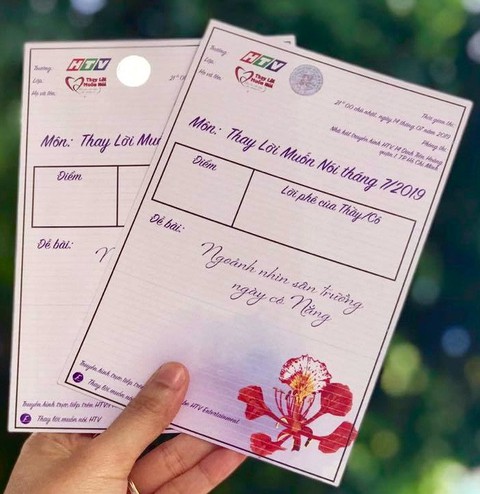 Trường:
Lớp:
Họ và tên:
HTV
Thay Lời
Muốn Nói
21h00 chủ nhật, ngày 14 tháng 07 năm 2019
Thời gian thi:
Phòng thi:
Nhà hát truyền hình HTV, 14 Đinh Tiên Hoàng
quận 1, TP Hồ Chí Minh
Môn: Thay Lời Muốn Nói tháng 7/2019
Điểm
Lời phê của Thầy/Cô
Đề bài:
Ngoảnh nhìn sân trường
ngày có Nắng
HTV Entertainment
Trường:
Lớp:
Họ và tên:
HTV
Thay Lời
Muốn Nói
21h00
Môn: Thay Lời Mu
Điểm
Đề bài:
N
Truyền hình trực tiếp trên HTV
Thay lời muốn nói HTV